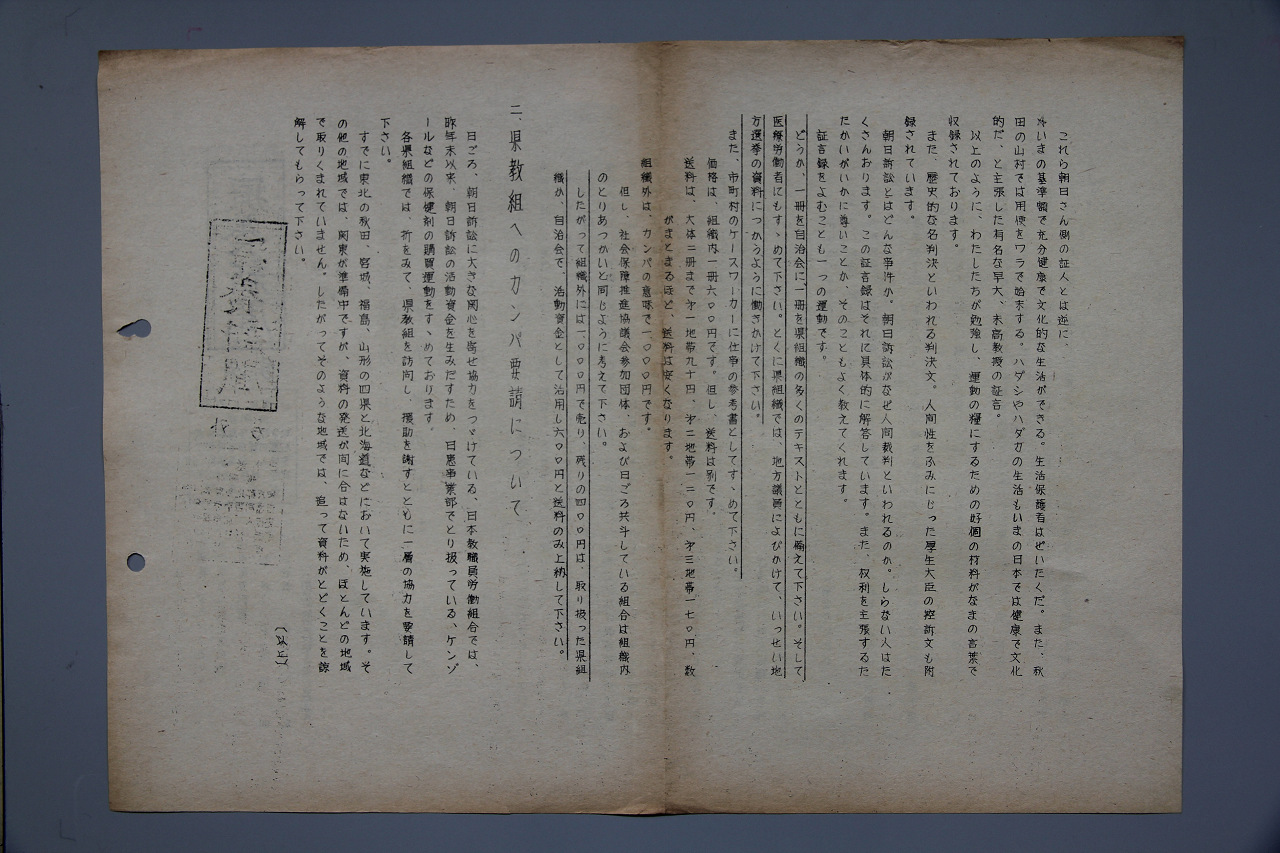 これら朝日さん側の証人とは逆に、
今いまの基準額で充分健康で文化的な生活ができる。生活保護者はぜいたくだ。また、秋
田の山村では用便をワラで始末する。ハダシやハダカの生活もいまの日本では健康で文化
的だ、と主張した有名な早大、末高教授の証言。
以上のように、わたしたちが勉強し、運動の糧にするための好個の材料がなまの言葉で
収録されております。
また、歴史的な名判決といわれる判決文。人間性をふみにじった厚生大臣の控訴文も附
録されています。
朝日訴訟とはどんな事件か。朝日訴訟がなぜ人间裁判といわれるのか。しらない人はた
くさんおります。この証言録はそれに具体的に解答しています。また、权利を主張するた
たかいがいかに尊いことか、そのこともよく教えてくれます。
証言録をよむことも一つの運動です。
どうか、一冊を自治会に、一冊を県組織の多くのテキストとともに備えて下さい。そして
医療労働者にもすゝめて下さい。とくに県組織では、地方議員によびかけて、いっせい地
方選挙の資料につかうように働きかけて下さい。
また、市町村のケースワーカーに仕事の参考書としてすゝめて下さい。
価格は、組織内一冊六〇〇円です。但し、送料は別です。
送料は、大体二冊まで才一地帯九十円、才二地帯一二〇円、才三地帯一七〇円、数
がまとまるほど、送料は安くなります。
組織外は、カンパの意味で一、〇〇〇円です。
但し、社会保障推進協議会参加団体、および日ごろ共斗している組合は組織内
のとりあつかいと同じように考えて下さい。
したがって組織外には一、〇〇〇円で売り、残りの四〇〇円は、取り扱った県組
織か、自治会で、活動資金として活用し六〇〇円と送料のみ上納して下さい。
二、県教組へのカンパ要請について
日ごろ、朝日訴訟に大きな関心を寄せ協力をつゞけている、日本教職員労働組合では、
昨年末以来、朝日訴訟の活動資金を生みだすため、日患事業部でとり扱っている、ケンゾ
ールなどの保健剤の購買運動をすゝめております。
各県組織では、折をみて、県教組を訪问し、援助を謝すとともに一層の協力を要請して
下さい。
すでに東北の秋田、宮城、福島、山形の四県と北海道などにおいて実施しています。そ
の他の地域では、関東が準備中ですが、資料の発送が间に合はないため、ほとんどの地域
で取りくまれていません。したがってそのような地域では、追って資料がとどくことを諒
解してもらって下さい。
（以上）